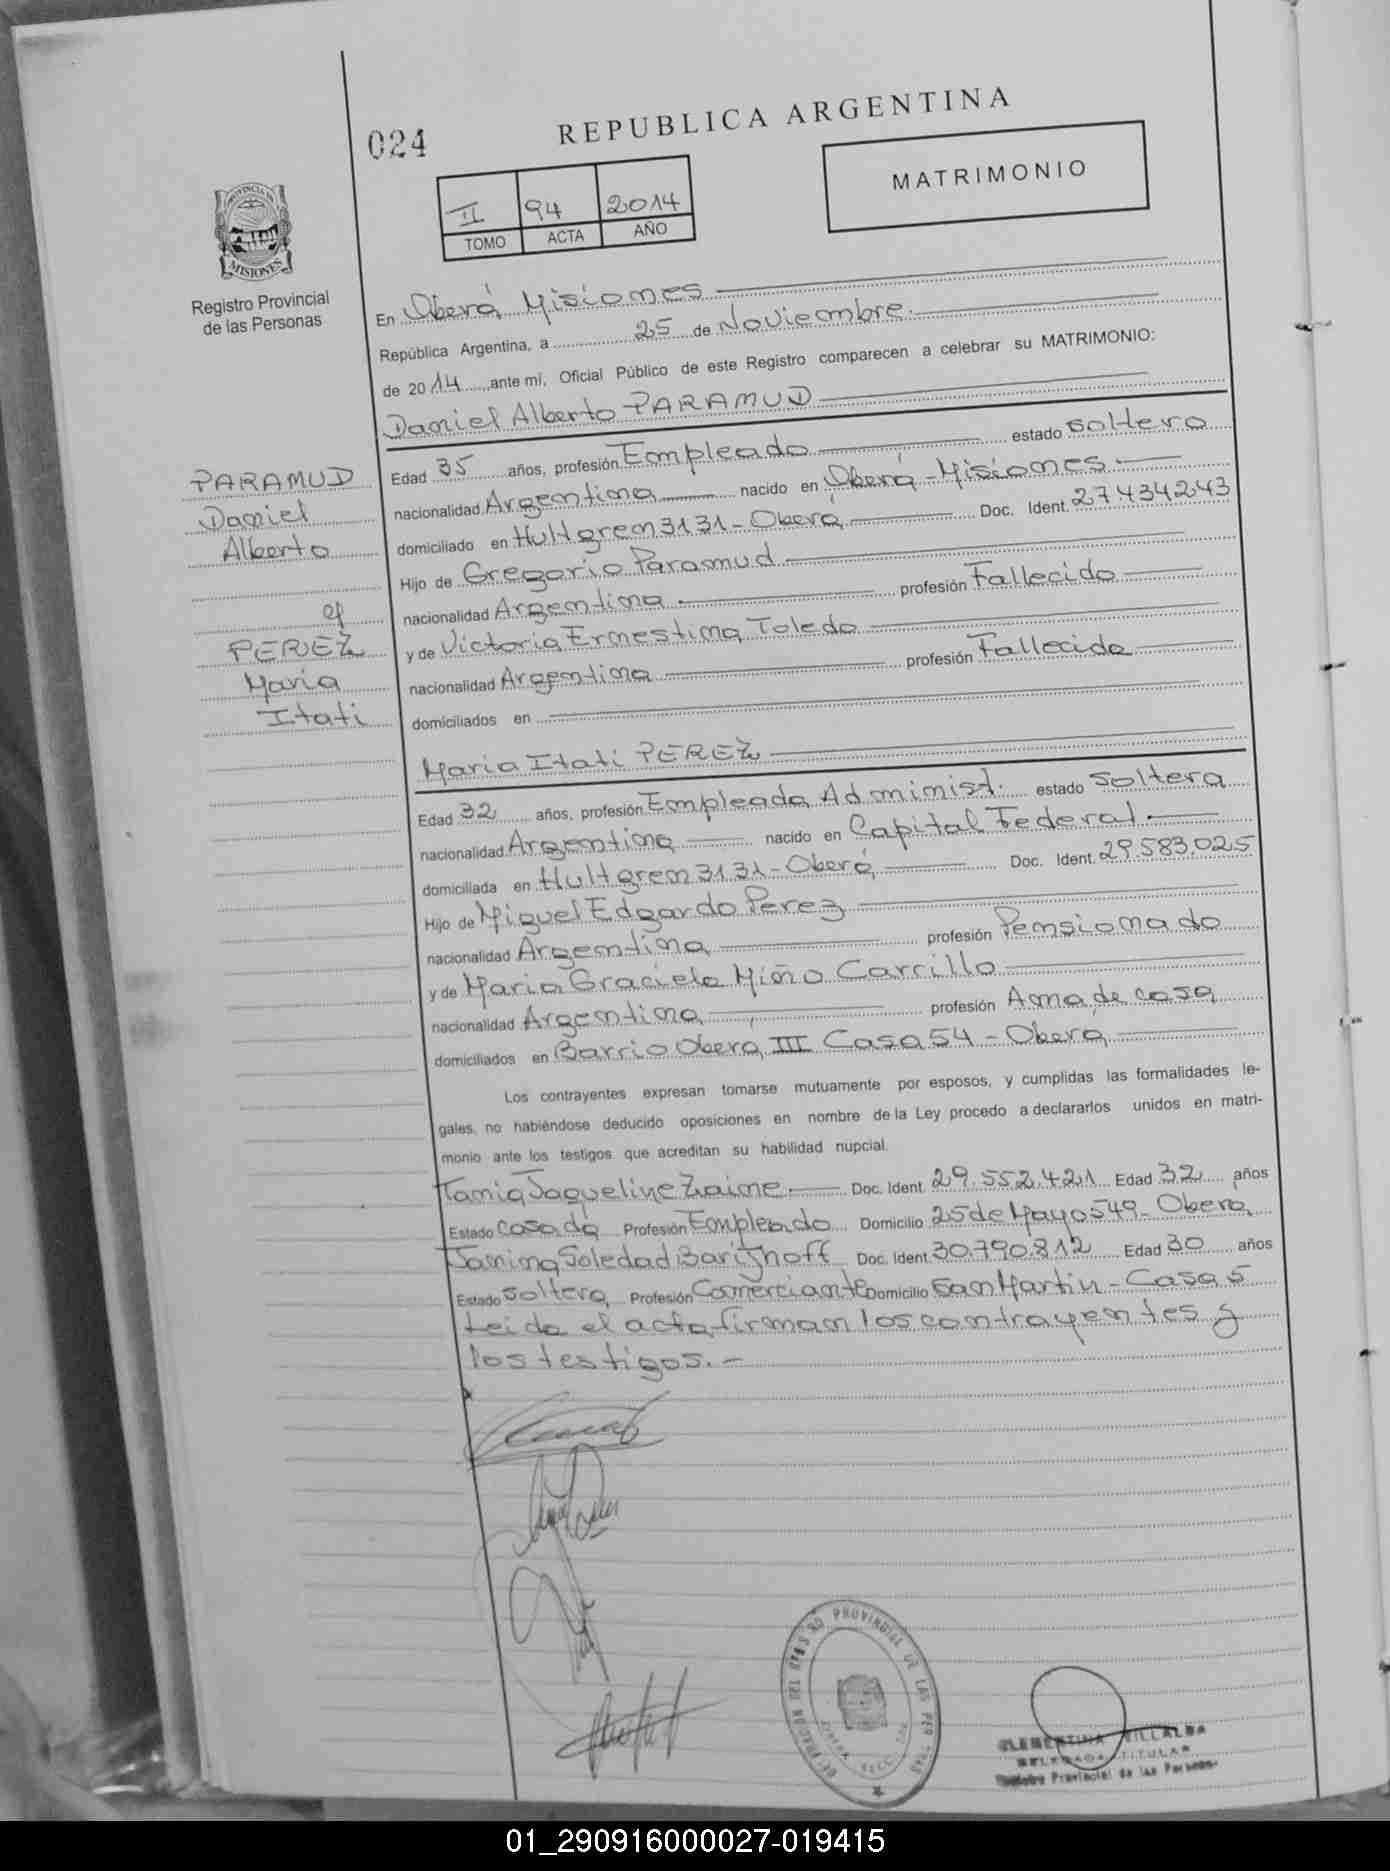 024
REPUBLICA ARGENTINA
MATRIMONIO
II 94 2014
TOMO ACTA AÑO
PROVINCIA DE
MISIONES
Registro Provincial
de las Personas
En Oberá, Misiones
República Argentina, a 25 de Noviembre.
de 2014 ante mí, Oficial Público de este Registro comparecen a celebrar su MATRIMONIO:
Daniel Alberto PARAMUD
Edad 35 años, profesión Empleado estado soltero
nacionalidad Argentina nacido en Oberá - Misiones
domiciliado en Hultgren 3131 - Oberá Doc. Ident. 27.434243
Hijo de Gregorio Paramud
nacionalidad Argentina profesión Fallecido
y de Victoria Ernestina Toledo
nacionalidad Argentina profesión Fallecida
domiciliados en
PARAMUD
Daniel
Alberto
PEREZ
Maria
Itati
Maria Itati PEREZ
Edad 32 años, profesión Empleada Administ. estado soltera
nacionalidad Argentina nacido en Capital Federal
domiciliada en Hultgren 3131 - Oberá Doc. Ident. 29.583.025
Hijo de Miguel Edgardo Perez
nacionalidad Argentina profesión Pensionado
y de Maria Graciela Miño Carrillo
nacionalidad Argentina profesión Ama de casa
domiciliados en Barrio Oberá III Casa 54 - Oberá
Los contrayentes expresan tomarse mutuamente por esposos, y cumplidas las formalidades le-
gales, no habiéndose deducido oposiciones en nombre de la Ley procedo a declararlos unidos en matri-
monio ante los testigos que acreditan su habilidad nupcial.
Tania Jaqueline Zaine Doc. Ident. 29.552.421 Edad 32 años
Estado casada Profesión Empleado Domicilio 25 de Mayo 549 - Oberá
Janina Soledad Barijhoff Doc. Ident. 30.790.812 Edad 30 años
Estado soltera Profesión Comerciante Domicilio San Martin - Casa 5
Leida el acta firman los contrayentes y
los testigos. -
CLEMENTINA VILLALBA
DELEGADA TITULAR
Registro Provincial de las Personas
01_290916000027-019415